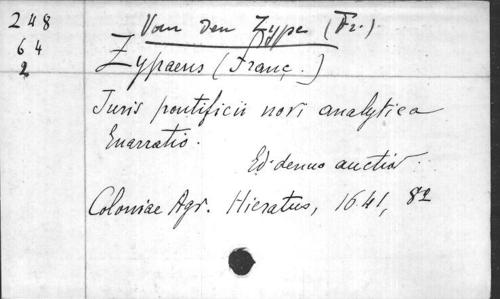 248
64
2
Vom den Zype (Fr.)
Zypaeus (Franç.)
Juris pontificii novi analytica
Enarratio.
Ed. denuo auctior
Coloniae Agr. Hieratus, 1641, 8º